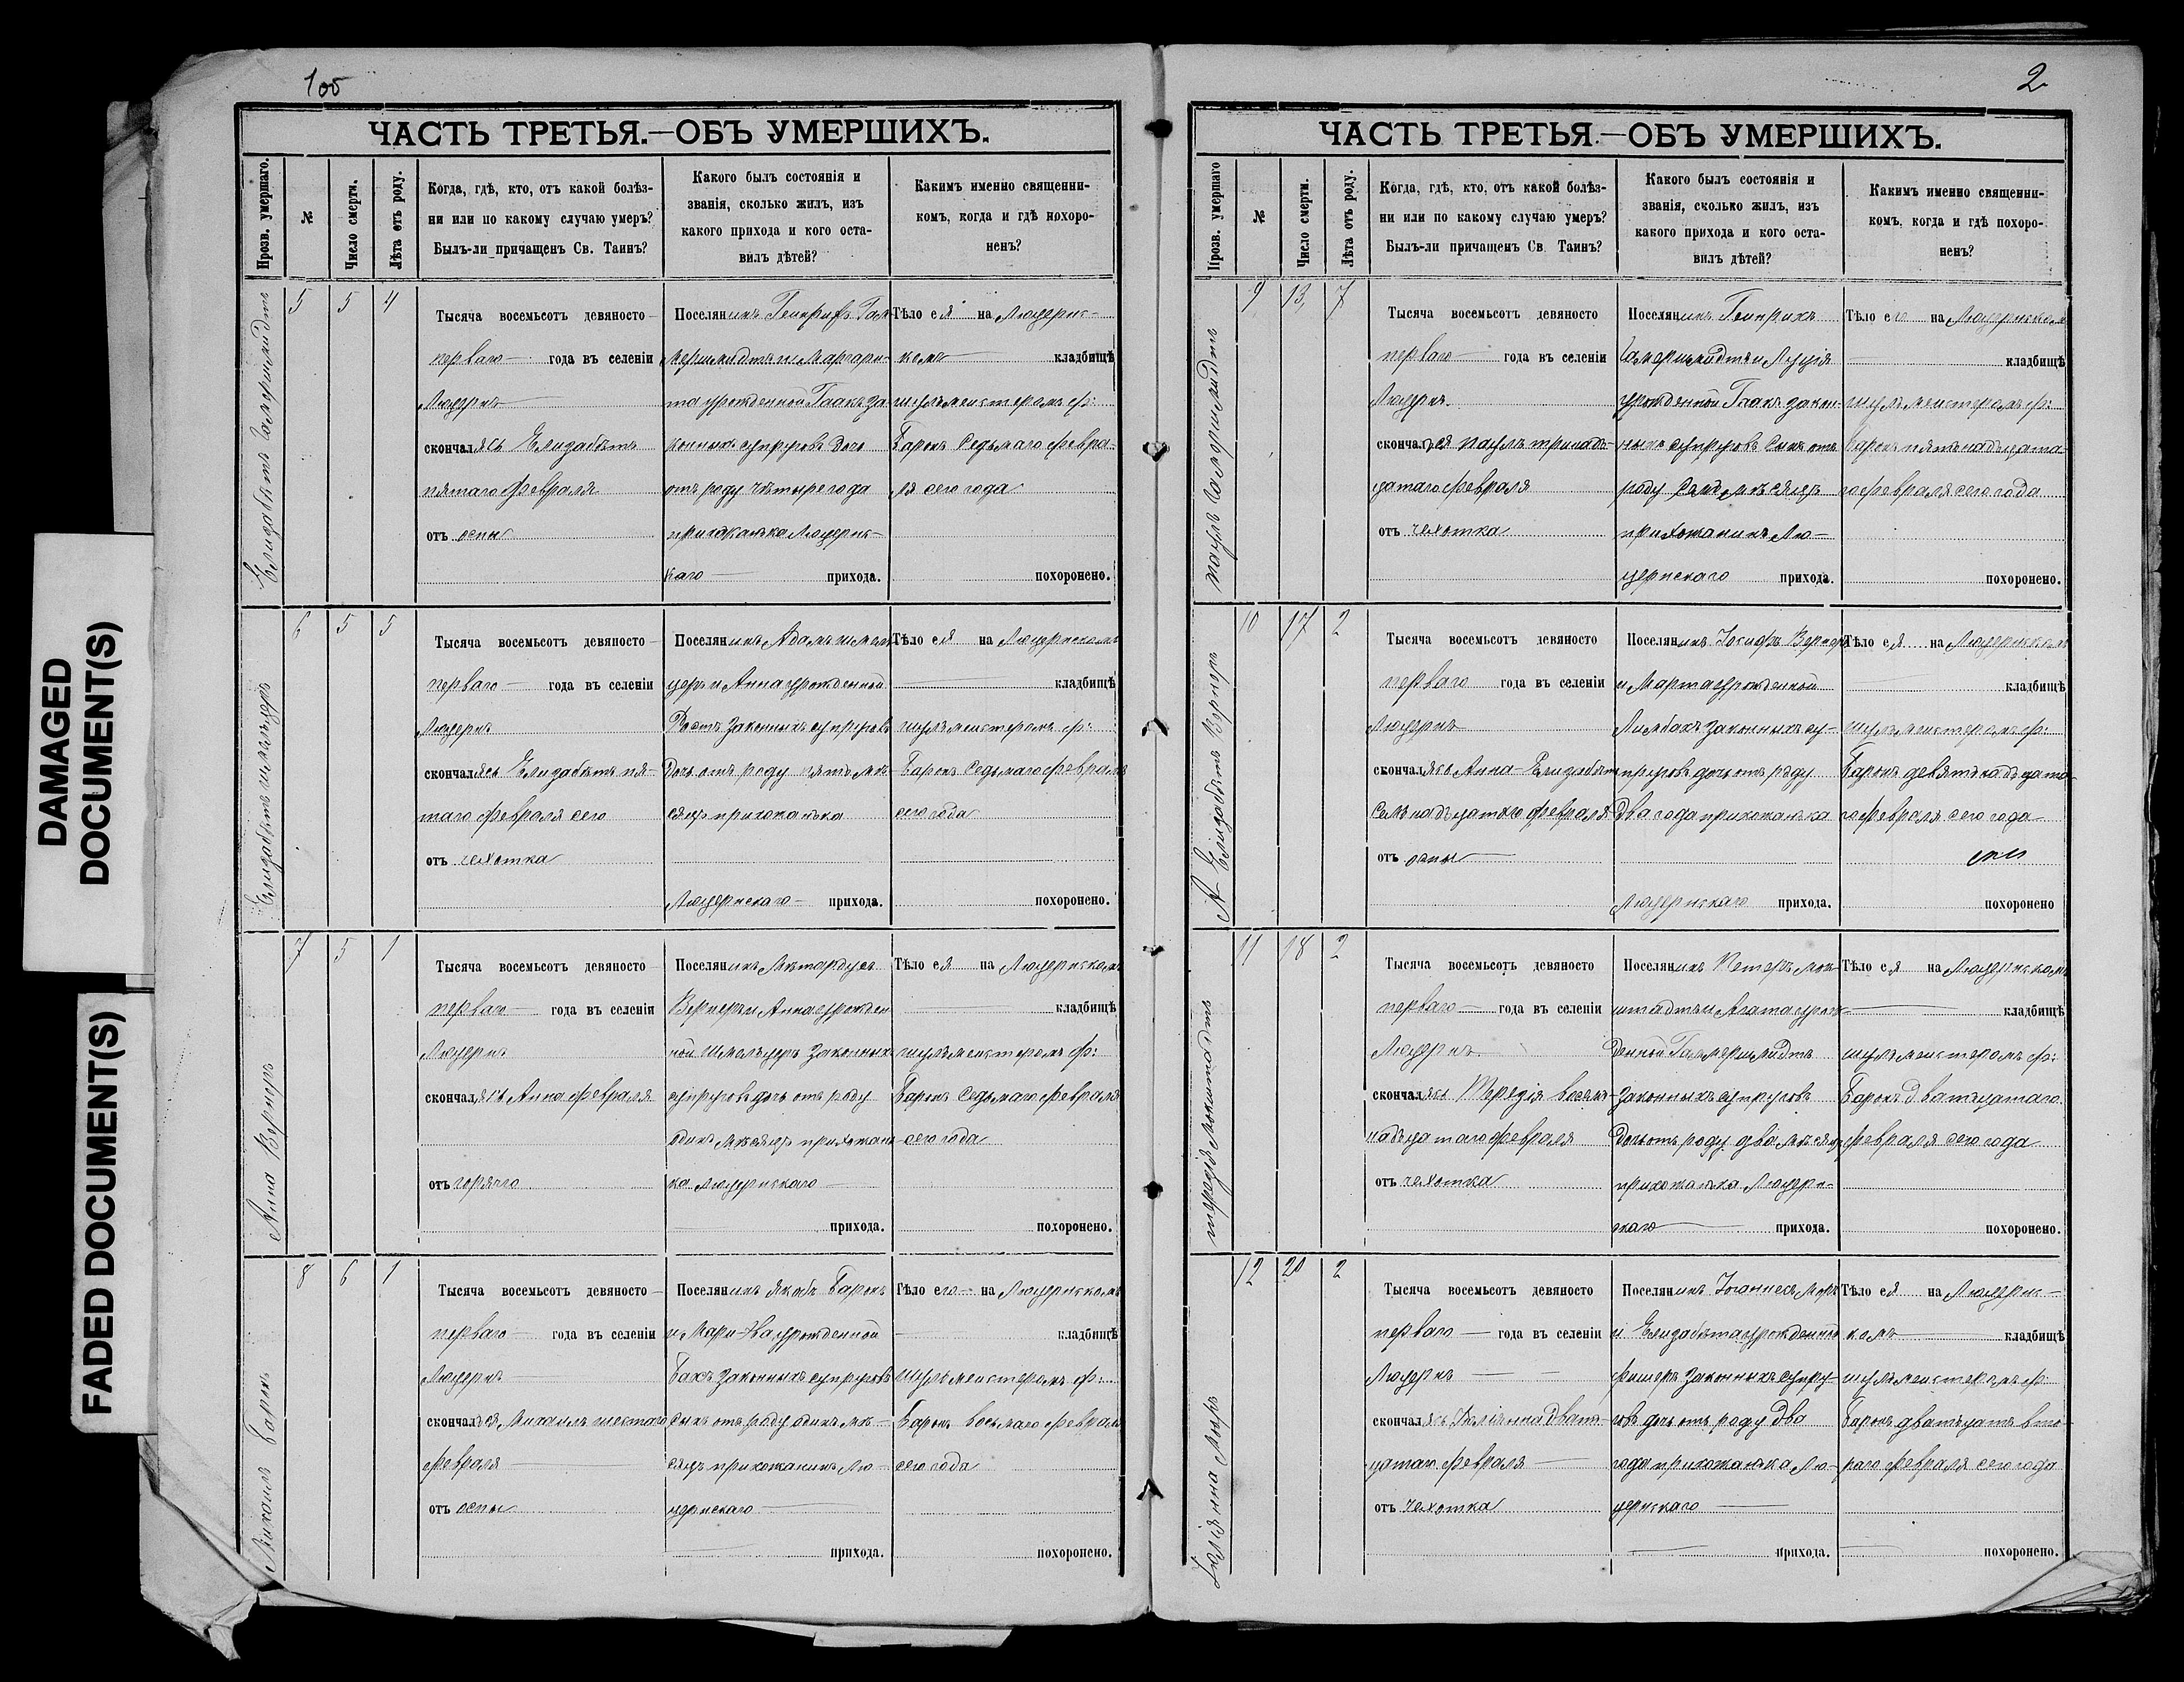 DAMAGED
DOCUMENT(S)
FADED DOCUMENT(S)
100
ЧАСТЬ ТРЕТЬЯ.—ОБЪ УМЕРШИХЪ.
Прозв. умершаго.
№
Число смерти.
Лѣта отъ роду.
Когда, гдѣ, кто, отъ какой болѣз-
ни или по какому случаю умеръ?
Былъ-ли причащенъ Св. Таинъ?
Какого былъ состоянія и
званія, сколько жилъ, изъ
какого прихода и кого оста-
вилъ дѣтей?
Какимъ именно священни-
комъ, когда и гдѣ похоро-
ненъ?
Елизабетъ Гамершмидтъ
5 5 4
Тысяча восемьсотъ девяносто
перваго года въ селеніи
Люцернъ
скончалась Елизабетъ
пятаго февраля
отъ оспы
Поселянинъ Генрихъ Гам
мершмидтъ и Маргари-
та урожденной Гаакъ за-
конныхъ супруговъ дочь
отъ роду четыре года
прихожанка Люцернс-
каго прихода.
Тѣло ея на Люцернс-
комъ кладбищѣ
шульмейстеромъ Ф:
Баронъ седьмаго февра-
ля сего года
похоронено.
6 5 5
Тысяча восемьсотъ девяносто
перваго года въ селеніи
Люцернъ
скончалась Елизабетъ пя-
таго февраля сего
отъ чахотка
Поселянинъ Адамъ Шмель
церъ и Анна урожденной
Ростъ законныхъ супруговъ
дочь отъ роду пять мѣ-
сяцъ прихожанка
Люцернскаго прихода.
Тѣло ея на Люцернскомъ
кладбищѣ
шульмейстеромъ Ф:
Баронъ седьмаго февраля
сего года
похоронено.
Анна Вернеръ
7 5 1
Тысяча восемьсотъ девяносто
перваго года въ селеніи
Люцернъ
скончалась Анна февраля
отъ горячо
Поселянинъ Метардусъ
Вернеръ и Анна урожден
ной Шмельцеръ законныхъ
супруговъ дочь отъ роду
одинъ мѣсяцъ прихожан
ка Люцернскаго
прихода.
Тѣло ея на Люцернскомъ
кладбищѣ
шульмейстеромъ Ф:
Баронъ седьмаго февраля
сего года
похоронено.
Михаилъ Баронъ
8 6 1
Тысяча восемьсотъ девяносто
перваго года въ селеніи
Люцернъ
скончался Михаилъ шестаго
февраля
отъ оспы
Поселянинъ Якобъ Баронъ
и Мари-Ева урожденной
Бакъ законныхъ супруговъ
сынъ отъ роду одинъ мѣ-
сяцъ прихожанинъ Лю-
цернскаго
прихода.
Тѣло его на Люцернскомъ
кладбищѣ
шульмейстеромъ Ф:
Баронъ восьмаго февраля
сего года
похоронено.
2
ЧАСТЬ ТРЕТЬЯ.—ОБЪ УМЕРШИХЪ.
Прозв. умершаго
№
Число смерти.
Лѣта отъ роду.
Когда, гдѣ, кто, отъ какой болѣз-
ни или по какому случаю умеръ?
Былъ-ли причащенъ Св. Таинъ?
Какого былъ состоянія и
званія, сколько жилъ, изъ
какого прихода и кого оста-
вилъ дѣтей?
Какимъ именно священни-
комъ, когда и гдѣ похоро-
ненъ?
Паулъ Гамершмидтъ
9 13 7
Тысяча восемьсотъ девяносто
перваго года въ селеніи
Люцернъ.
скончался Паулъ тринадъ-
цатаго февраля
отъ чахотка
Поселянинъ Генрихъ
Гамершмидтъ и Луція
урожденной Гаакъ закон-
ныхъ супруговъ сынъ отъ
роду семь мѣсяцъ
прихожанинъ Лю-
цернскаго прихода.
Тѣло его на Люцернском
кладбищѣ
шульмейстеромъ Ф:
Баронъ пятьнадъцата-
го февраля сего года
похоронено.
А Елизабетъ Вернеръ
10 17 2
Тысяча восемьсотъ девяносто
перваго года въ селеніи
Люцернъ
скончалась Анна-Елизабетъ
семьнадъцатаго февраля
отъ оспы
Поселянинъ Іосифъ Вернеръ
и Марта урожденной
Лимбахъ законныхъ су-
пруговъ дочь отъ роду
два года прихожанка
Люцернскаго прихода.
Тѣло ея на Люцернскомъ
кладбищѣ
шульмейстеромъ Ф:
Баронъ девятьнадъцата-
го февраля сего года
похоронено
11 18 2
Тысяча восемьсотъ девяносто
перваго года въ селеніи
Люцернъ.
скончалась Терезія восемь-
надъцатаго февраля
отъ чахотка
Поселянинъ Петеръ Мок-
штадтъ и Агата урож-
денной Гаммершмидтъ
законныхъ супруговъ
дочь отъ роду два мѣсяцъ
прихожанка Люцерн-
скаго прихода.
Тѣло ея на Люцернскомъ
кладбищѣ
шульмейстеромъ Ф:
Баронъ дватьцатаго
февраля сего года
похоронено.
12 20 2
Тысяча восемьсотъ девяносто
перваго года въ селеніи
Люцернъ
скончалась Юліянна дват-
цатаго февраля
отъ чахотка
Поселянинъ Іоаннесъ Моръ
и Елизабета урожденной
Фишеръ законныхъ супру-
говъ дочь отъ роду два
года прихожанка Лю-
цернскаго
прихода.
Тѣло ея на Люцернс-
комъ кладбищѣ
шульмейстеромъ Ф:
Баронъ дватьцать вто-
раго февраля сего года
похоронено.